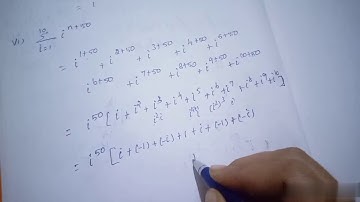 vi) 10 Σ i=1 i^n+50
= i^1+50 + i^2+50 + i^3+50 + i^4+50 + i^5+50
i^6+50 + i^7+50 + i^8+50 + i^9+50 + i^10+50
= i^50 [ i + i^2 + i^3 + i^4 + i^5 + i^6 + i^7 + i^8 + i^9 + i^10 ]
= i^50 [ i + (-1) + (-i) + 1 + i + (-1) + (-i)